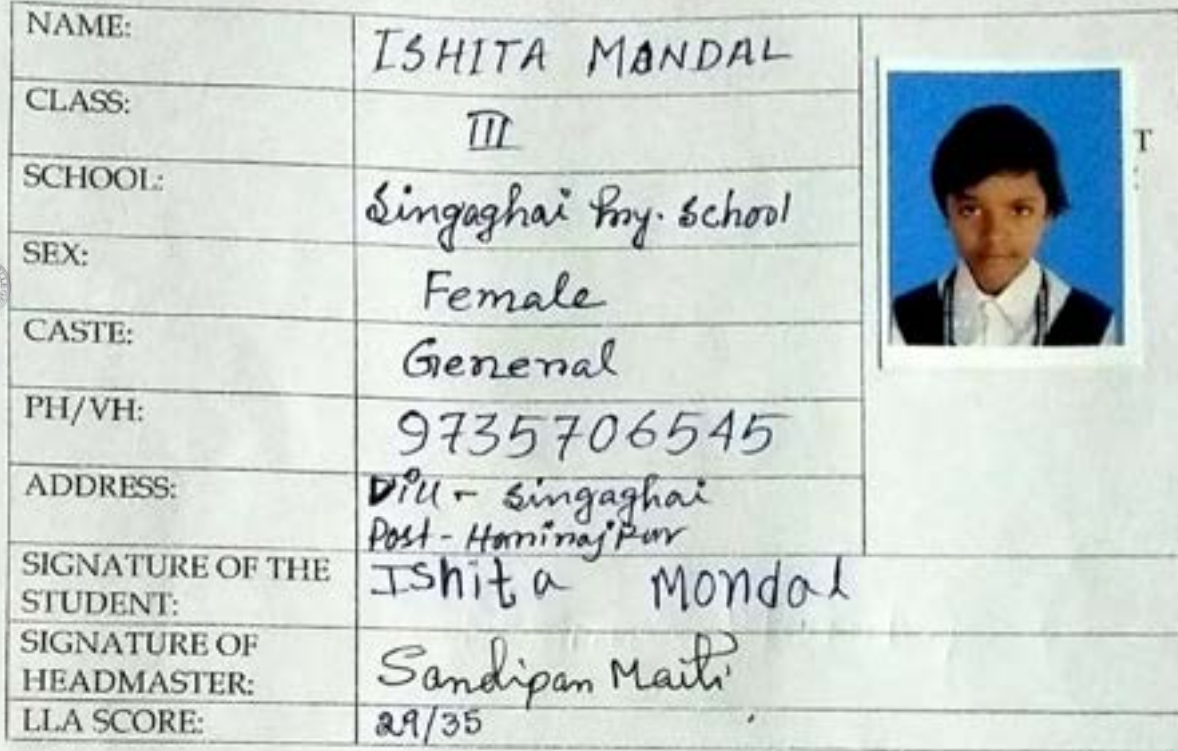 NAME: ISHITA MANDAL
CLASS: III
SCHOOL: Singaghai Pry. School
SEX: Female
CASTE: General
PH/VH: 9735706545
ADDRESS: Vill - Singaghai
Post - Haninajpur
SIGNATURE OF THE STUDENT: Ishita Mondal
SIGNATURE OF HEADMASTER: Sandipan Maiti
LLA SCORE: 29/35
T